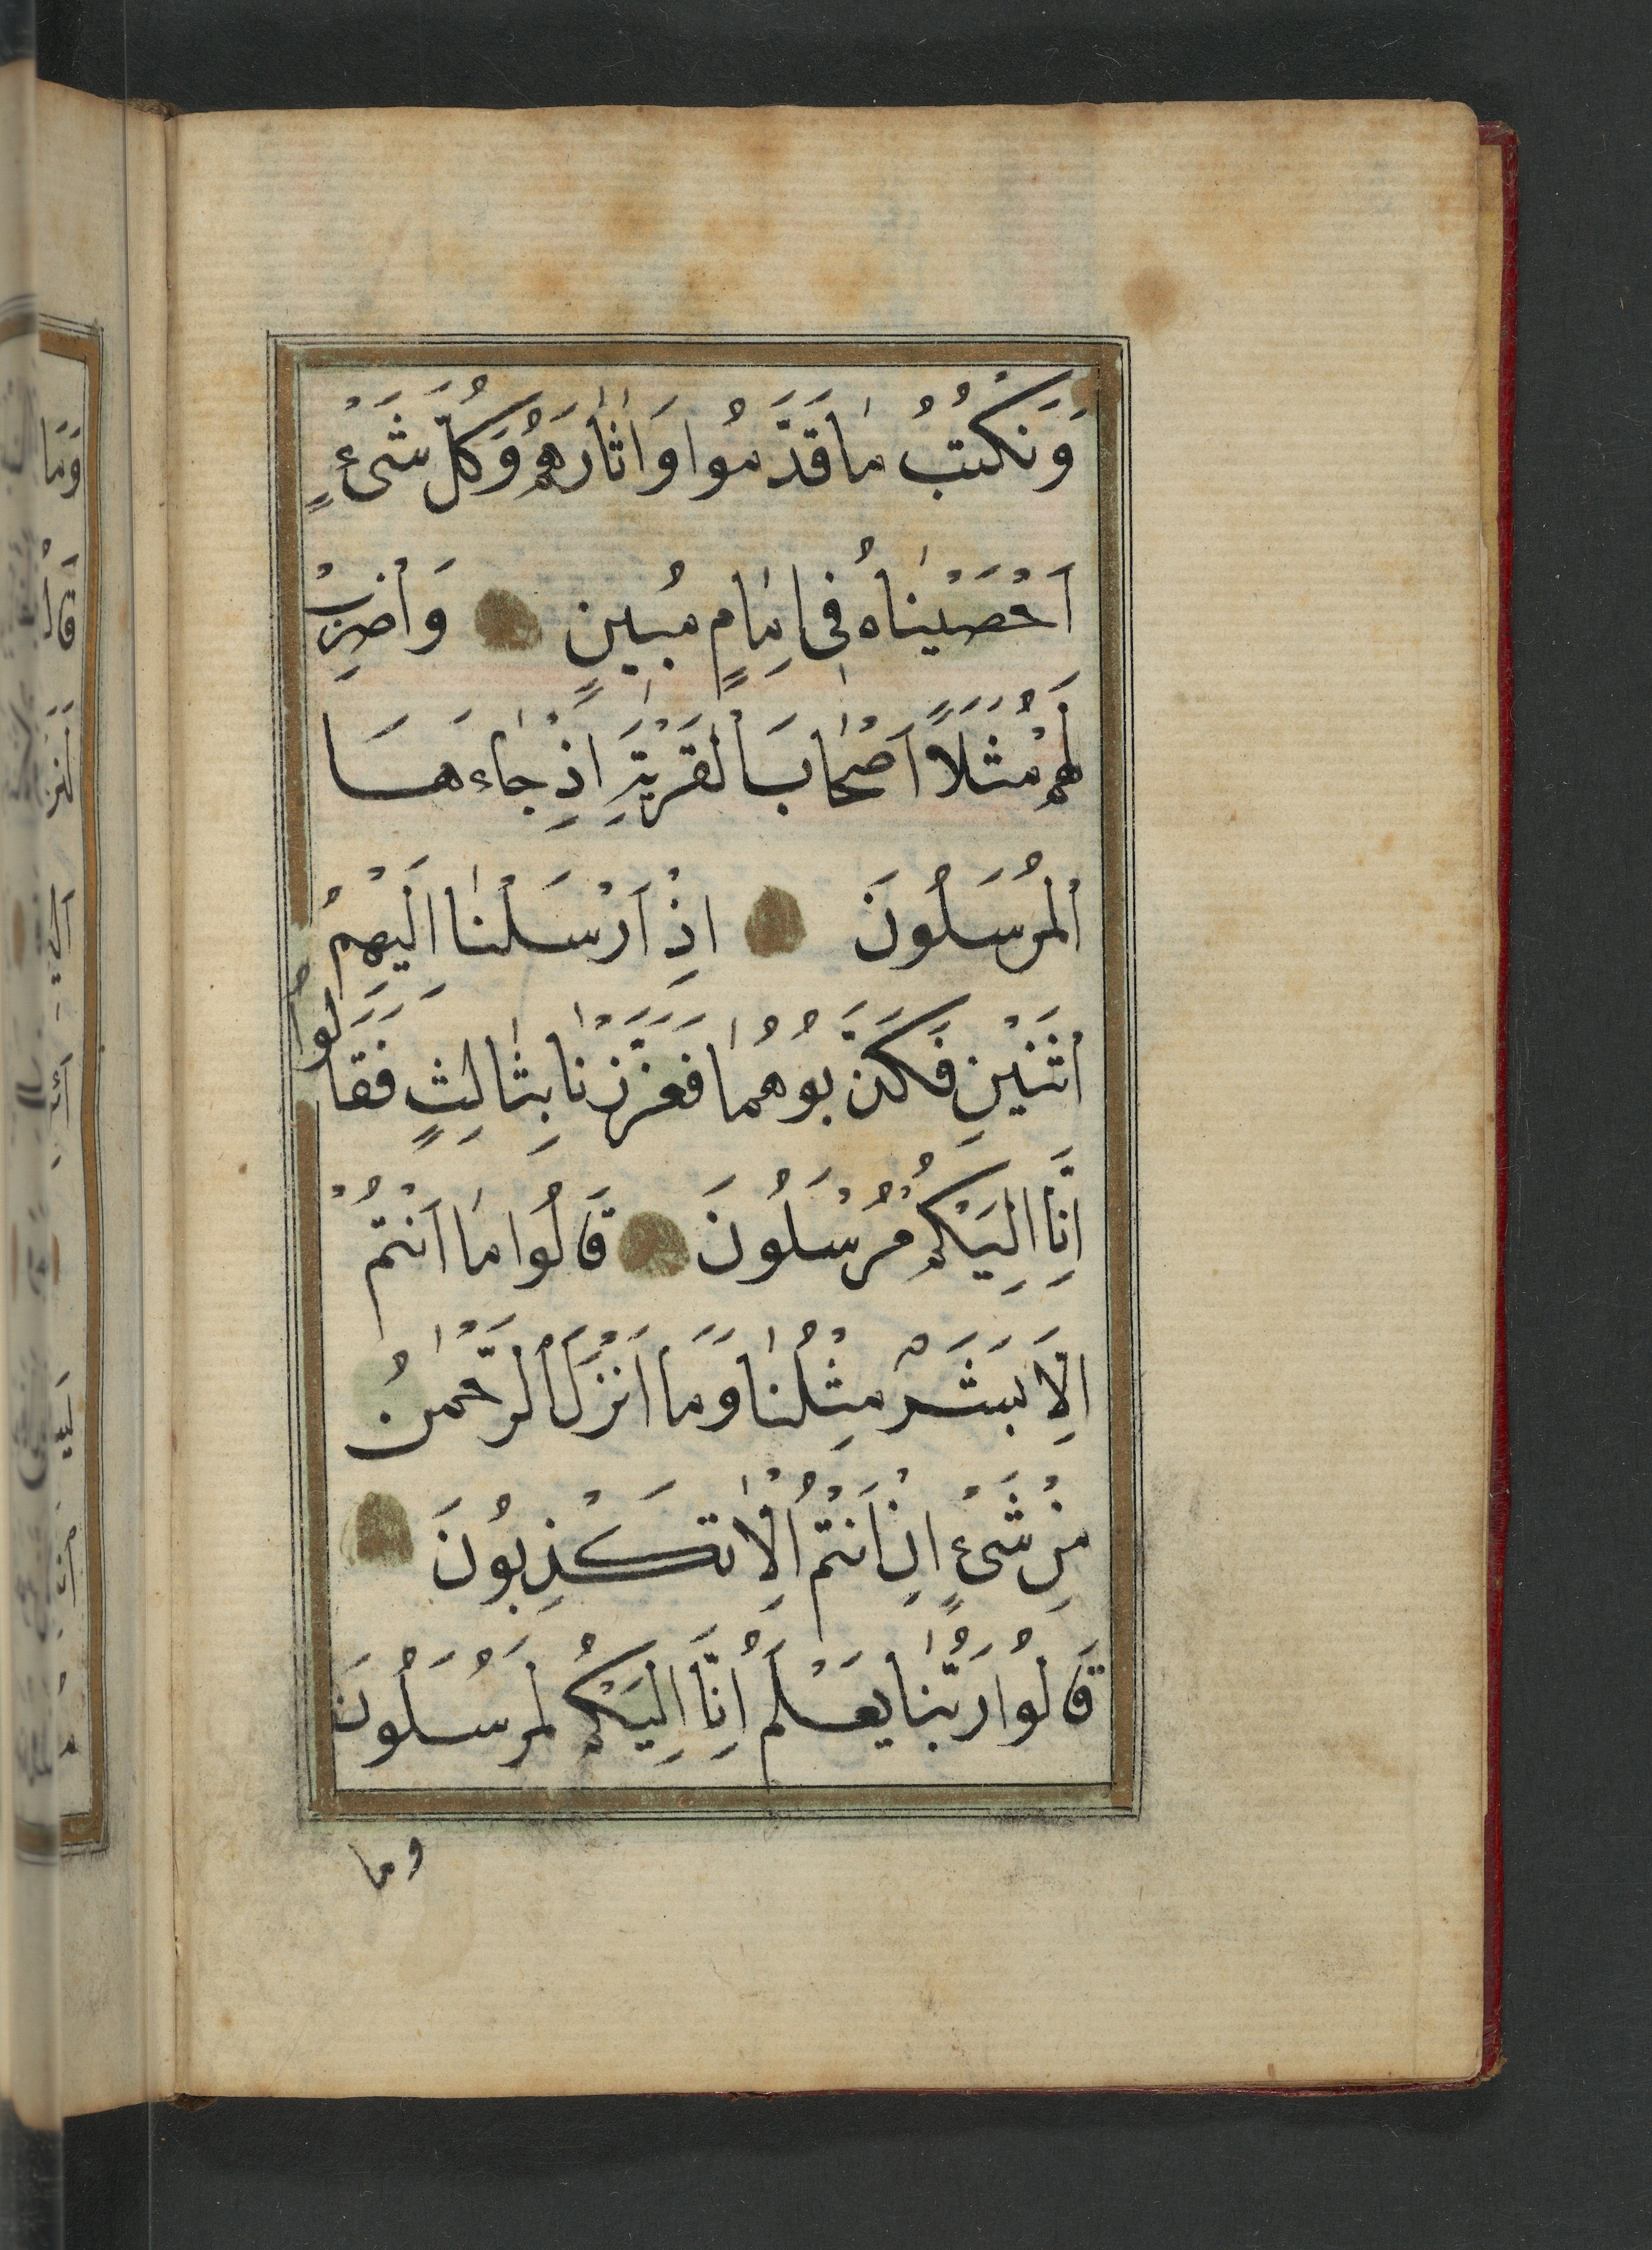 وَنَكْتُبُ مَا قَدَّمُوا وَاٰثَارَهُمْ وَكُلَّ شَىْءٍ
اَحْصَيْنَاهُ فِى اِمَامٍ مُبِينٍ وَاضْرِبْ
لَهُمْ مَثَلًا اَصْحَابَ الْقَرْيَةِ اِذْ جَاءَهَا
الْمُرْسَلُونَ اِذْ اَرْسَلْنَا اِلَيْهِمُ
اثْنَيْنِ فَكَذَّبُوهُمَا فَعَزَّزْنَا بِثَالِثٍ فَقَالُوا
اِنَّا اِلَيْكُمْ مُرْسَلُونَ قَالُوا مَا اَنْتُمْ
اِلَّا بَشَرٌ مِثْلُنَا وَمَا اَنْزَلَ الرَّحْمٰنُ
مِنْ شَىْءٍ اِنْ اَنْتُمْ اِلَّا تَكْذِبُونَ
قَالُوا رَبُّنَا يَعْلَمُ اِنَّا اِلَيْكُمْ لَمُرْسَلُونَ
وما